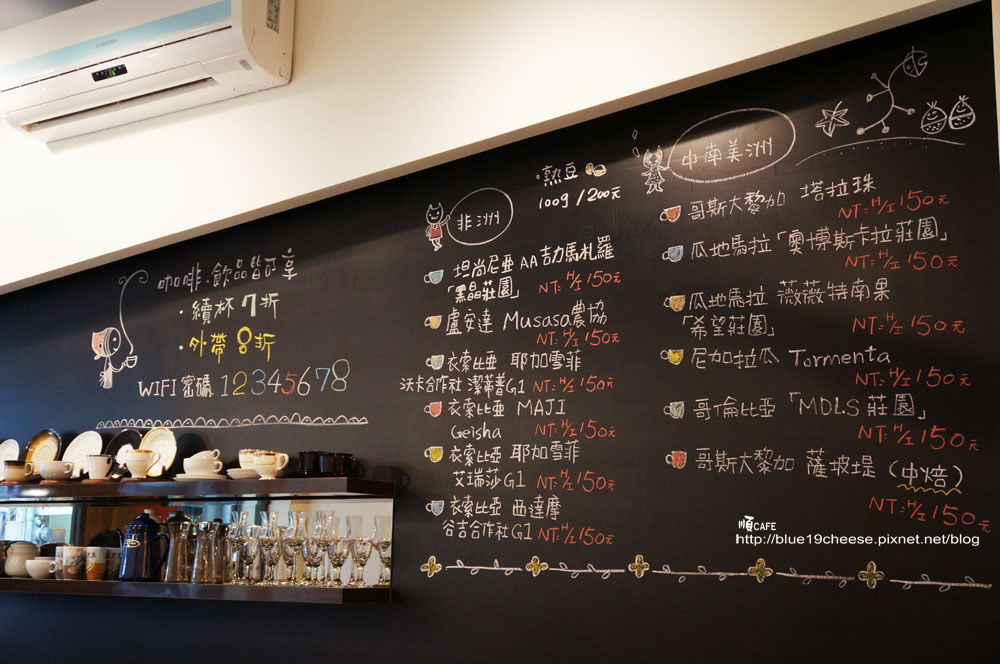 咖啡.飲品皆可享
·續杯 7折
·外帶 8折
WIFI 密碼 12345678
·熟豆
100g /200元
非洲
坦尚尼亞 AA 吉力馬札羅
「黑晶莊園」 NT: H/I 150元
盧安達 Musasa農協
NT: H/I 150元
衣索比亞 耶加雪菲
沃卡合作社 潔蒂普G1 NT: H/I 150元
衣索比亞 MAJI
Geisha NT: H/I 150元
衣索比亞 耶加雪菲
艾瑞莎G1 NT: H/I 150元
衣索比亞 西達摩
谷吉合作社G1 NT: H/I 150元
中南美洲
哥斯大黎加 塔拉珠
NT: H/I 150元
瓜地馬拉「奧博斯卡拉莊園」
NT: H/I 150元
瓜地馬拉 薇薇特南果
「希望莊園」 NT: H/I 150元
尼加拉瓜 Tormenta
NT: H/I 150元
哥倫比亞「MDLS莊園」
NT: H/I 150元
哥斯大黎加 薩坡堤 (中焙)
NT: H/I 150元
CAFE
http://blue19cheese.pixnet.net/blog